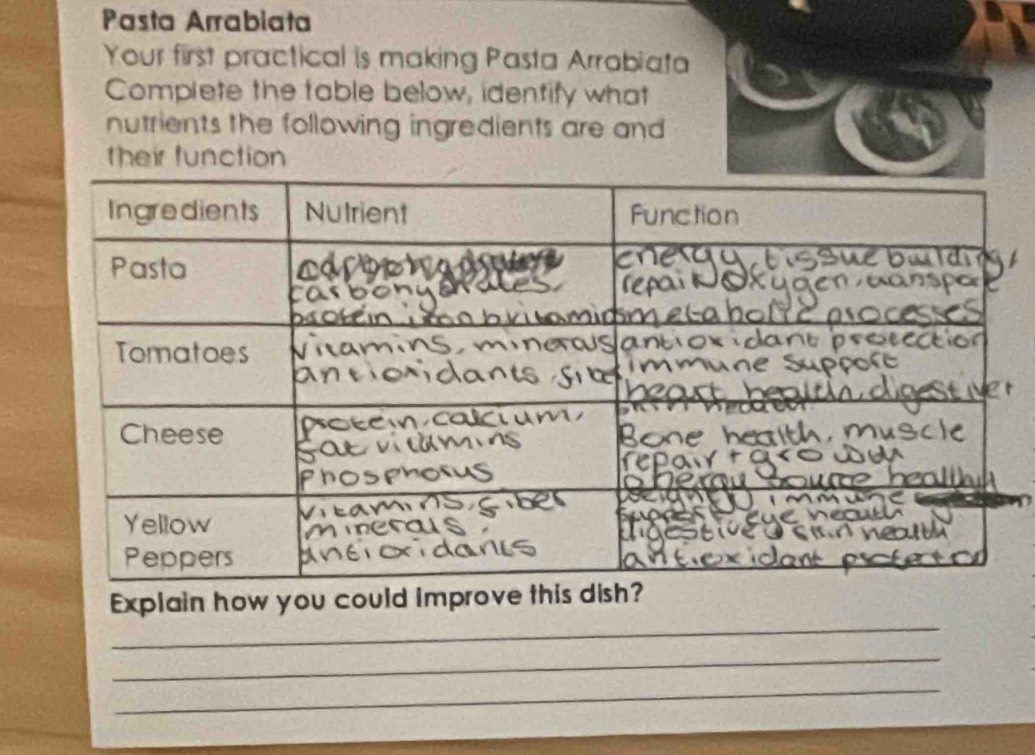 Pasta Arrabiata
Your first practical is making Pasta Arrabiata
Complete the table below, identify what
nutrients the following ingredients are and
their function
Ingredients Nutrient Function
Pasta
carbohydrates,
protein iron b vitamins
energy, tissue building,
repair oxygen, transport
metabolic processes
Tomatoes
vitamins, minerals
antioxidants, fiber
antioxidant protection
immune support
heart health, digestive
Cheese
protein, calcium,
fat vitamins
phosphorus
Bone health, muscle
repair + growth
energy source healthy
Yellow
Peppers
vitamins, fiber
minerals,
antioxidants
weight immune
support, eye health
digestive skin health
antioxidant protection
Explain how you could improve this dish?